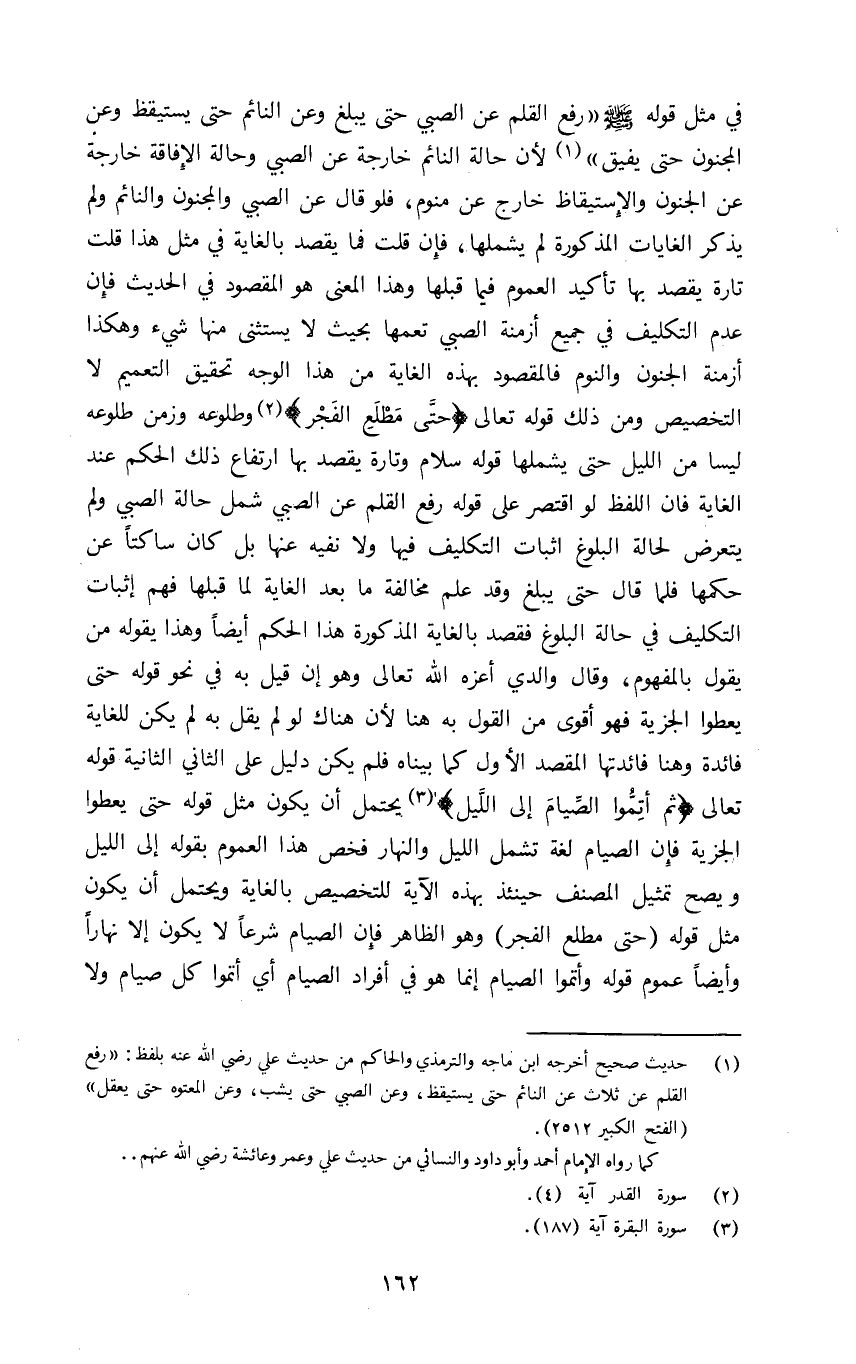 في مثل قوله ﷺ «رفع القلم عن الصبي حتى يبلغ وعن النائم حتى يستيقظ وعن
المجنون حتى يفيق»(١) لأن حالة النائم خارجة عن الصبي وحالة الإفاقة خارجة
عن الجنون والإستيقاظ خارج عن منوم، فلو قال عن الصبي والمجنون والنائم ولم
يذكر الغايات المذكورة لم يشملها، فإن قلت فما يقصد بالغاية في مثل هذا قلت
تارة يقصد بها تأكيد العموم فيما قبلها وهذا المعنى هو المقصود في الحديث فإن
عدم التكليف في جميع أزمنة الصبي تعمها بحيث لا يستثنى منها شيء وهكذا
أزمنة الجنون والنوم فالمقصود بهذه الغاية من هذا الوجه تحقيق التعميم لا
التخصيص ومن ذلك قوله تعالى ﴿حتَّى مَطْلَعِ الفَجْرِ﴾(٢) وطلوعه وزمن طلوعه
ليسا من الليل حتى يشملها قوله سلام وتارة يقصد بها ارتفاع ذلك الحكم عند
الغاية فان اللفظ لو اقتصر على قوله رفع القلم عن الصبي شمل حالة الصبي ولم
يتعرض لحالة البلوغ اثبات التكليف فيها ولا نفيه عنها بل كان ساكتاً عن
حكمها فلما قال حتى يبلغ وقد علم مخالفة ما بعد الغاية لما قبلها فهم إثبات
التكليف في حالة البلوغ فقصد بالغاية المذكورة هذا الحكم أيضاً وهذا يقوله من
يقول بالمفهوم، وقال والدي أعزه الله تعالى وهو إن قيل به في نحو قوله حتى
يعطوا الجزية فهو أقوى من القول به هنا لأن هناك لو لم يقل به لم يكن للغاية
فائدة وهنا فائدتها المقصد الأول كما بيناه فلم يكن دليل على الثاني الثانية قوله
تعالى ﴿ثم أتِمُّوا الصِّيامَ إلى اللَّيل﴾(٣) يحتمل أن يكون مثل قوله حتى يعطوا
الجزية فإن الصيام لغة تشمل الليل والنهار فخص هذا العموم بقوله إلى الليل
ويصح تمثيل المصنف حينئذ بهذه الآية للتخصيص بالغاية ويحتمل أن يكون
مثل قوله (حتى مطلع الفجر) وهو الظاهر فإن الصيام شرعاً لا يكون إلا نهاراً
وأيضاً عموم قوله وأتموا الصيام إنما هو في أفراد الصيام أي أتموا كل صيام ولا
(١) حديث صحيح أخرجه ابن ماجه والترمذي والحاكم من حديث علي رضي الله عنه بلفظ: «رفع
القلم عن ثلاث عن النائم حتى يستيقظ، وعن الصبي حتى يشب، وعن المعتوه حتى يعقل»
(الفتح الكبير ٢٥١٢).
كما رواه الإمام أحمد وأبو داود والنسائي من حديث علي وعمر وعائشة رضي الله عنهم..
(٢) سورة القدر آية (٤).
(٣) سورة البقرة آية (١٨٧).
١٦٢